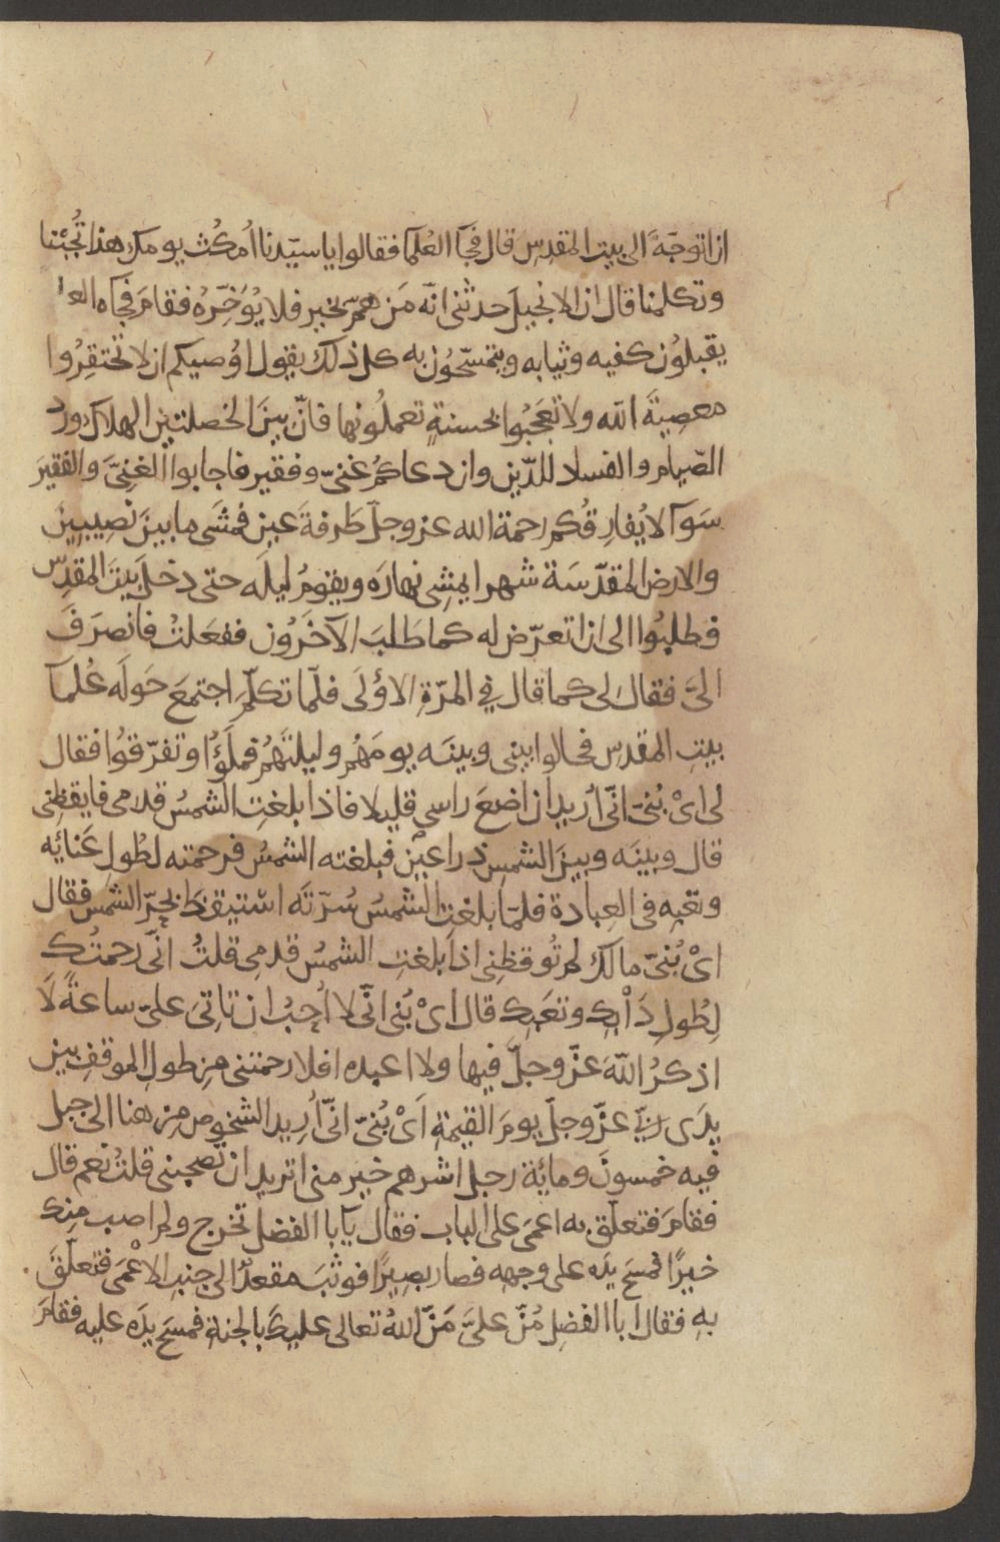 ان اتوجّهَ الى بيت المقدِس قال فجآ العُلمآ فقالوا يا سيّدنا اُمكُث يومك هذا تُجئنا
وتكلمنا قال ان الانجيل حدثنى انّه مَن همّ بخير فلا يُؤخِّرهُ فقامَ فجاه العلما
يقبلوُن كفيه وثيابه ويتمسّحُون به كل ذلك يقول اوُصيكم ان لا تحتقِرُوا
معصِيَةَ الله ولا تعجَبُوا بحسنةٍ تعملُونها فانّ بينَ الخصلتين الهلاك ورد
الصّيام والفساد للدّين وان دعاكمُ غنىّ وفقير فاجابوا الغنِىَّ والفقيرَ
سَوآ لا يُفارِقُكم رحمة الله عز وجلّ طَرفةَ عينٍ فمشَى ما بينَ نصِيبينَ
والارض المقدّسَة شهرا يمشِى نهارَه ويقومُ ليلَه حتى دخلَ بيتَ المقدِس
فطلبُوا الى ان اتعرّض له كما طَلبَ الآخَرُون ففعَلتُ فانصرَفَ
الىَّ فقال لى كما قال في المرّةِ الاوُلَى فلمّا تكلّمَ اجتمعَ حَولَه عُلمَآ
بيتِ المقدس فحالوا بينى وبينَه يومَهُم وليلتَهُم فملَوُّا وتفرّقوُا فقال
لى اىْ بُنىّ انّى اُريد ان اضعَ راسى قليلا فاذا بلغتِ الشمسُ قدمى فايقظنى
قال وبينَه وبينَ الشمس ذراعين فبلغته الشمسُ فرحمته لطُولِ عَنائه
وتعبِه فى العِبادة فلمّا بلغتِ الشمسُ سُرّتَه استيقظَ بحرّ الشمس فقال
اىْ بُنىّ مالك لم تُوقظِنى اذا بلغتِ الشمسُ قدمى قلتُ انّى رحمتُك
لِطُولِ دَأْبِك وتعَبِك قال اىْ بُنى انّى لا اُحِبُ ان تاتىَ علىّ ساعةً لَا
اذكرُ اللّه عَزّ وجلّ فيها ولا اعبده افلا رحمتنى مِن طولِ الموقفِ بين
يدَى ربّى عزّ وجلّ يومَ القيمةِ اَىْ بُنىّ انّى اُرِيد الشخوص مِن هنا الى جبل
فيه خمسونَ ومايَة رجل اشرهم خير منى اتريد ان تصحبنى قلتُ نعم قال
فقامَ فتعلّق به اعمَى على الباب فقال يآبا الفضل تخرج ولم اصب مِنك
خيرًا فمسَحَ يدَه على وجهِه فصار بصِيرًا فوثبَ مقعدٌ الى جنبِ الاعْمَى فتعلّقَ
بهِ فقال ابا الفضِل مُنّ علىَّ مَنّ اللهُ تعالى عليك بالجنةِ فمسَحَ يدَه عليه فقامَ